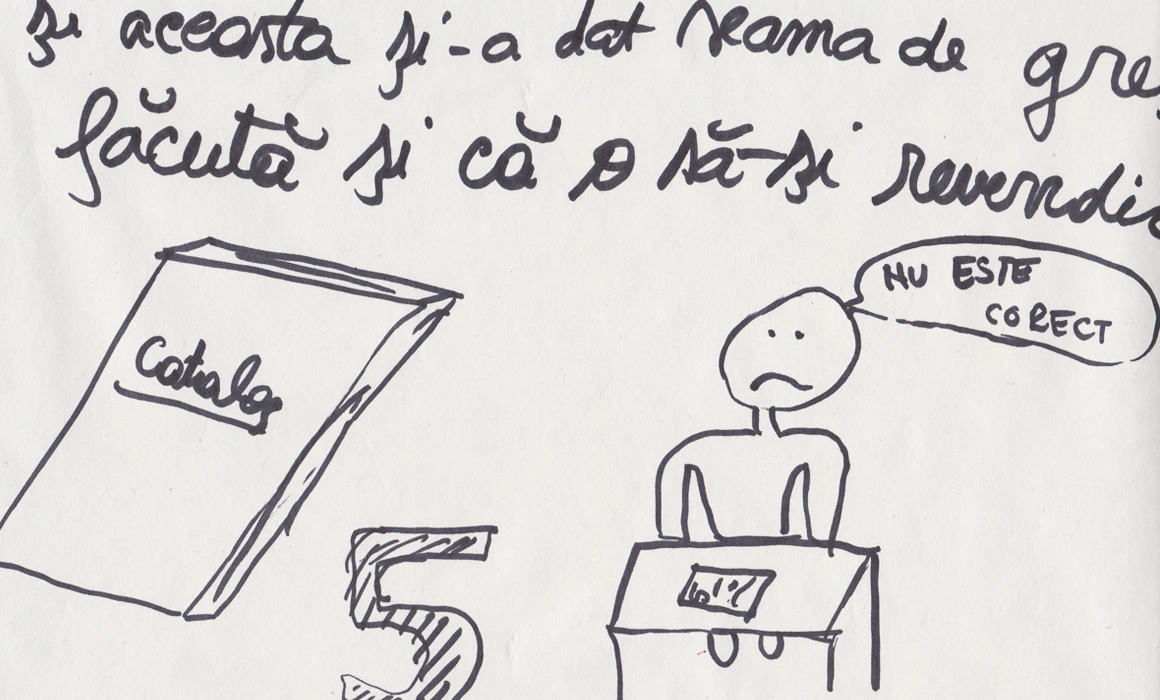 și aceasta și-a dat seama de gre
făcută și că o să-și revendic
NU ESTE
CORECT
Catalog
5